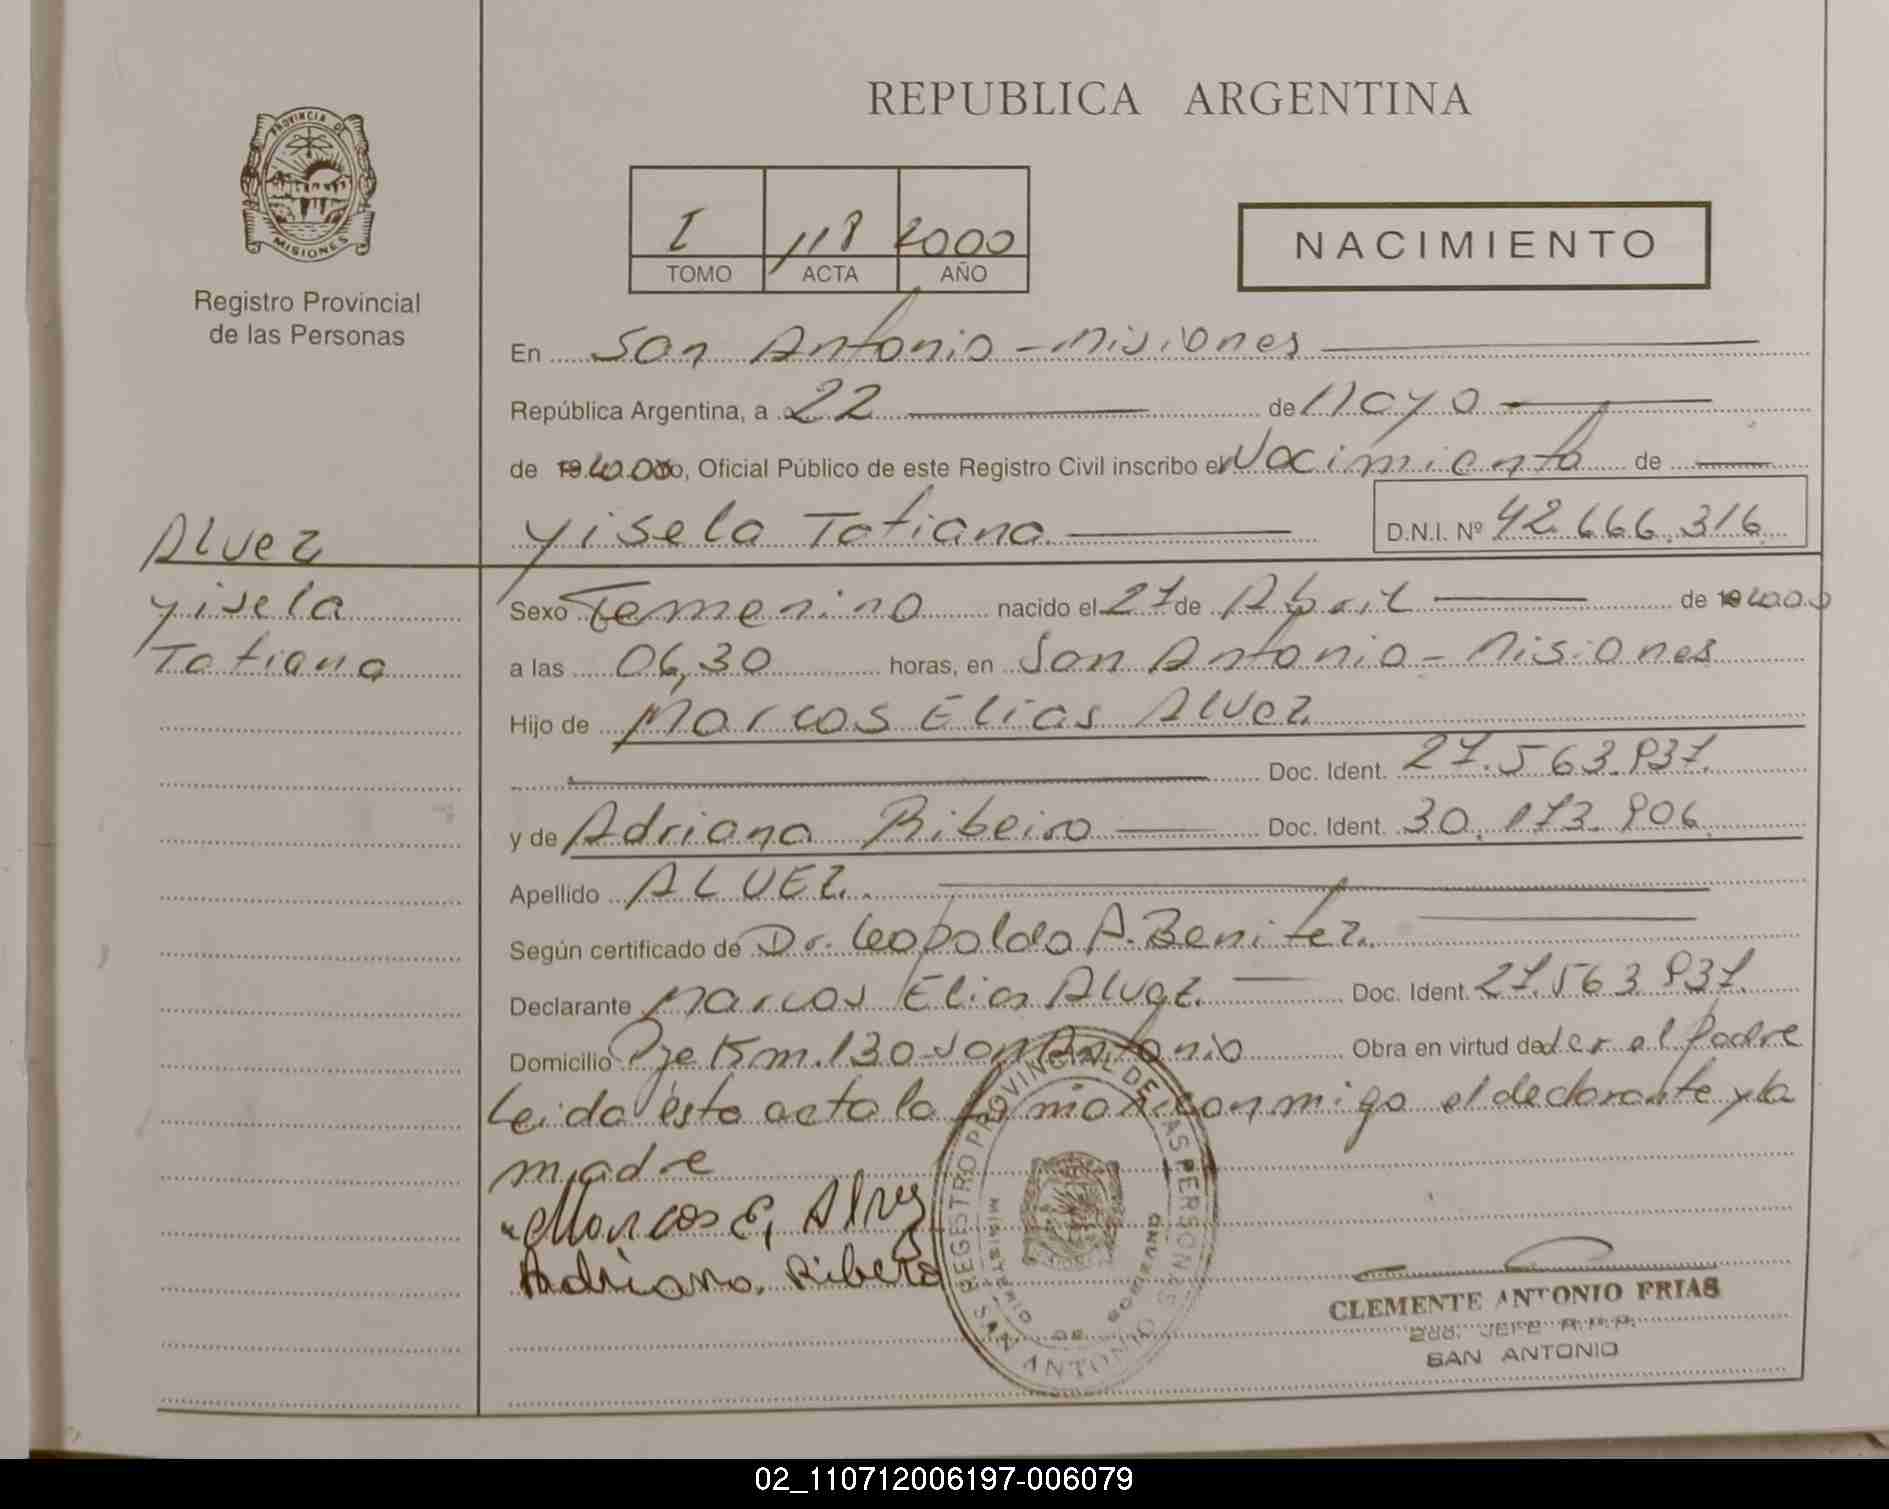 REPUBLICA ARGENTINA
PROVINCIA DE
MISIONES
Registro Provincial
de las Personas
I 118 2000
TOMO ACTA AÑO
NACIMIENTO
En San Antonio - Misiones
República Argentina, a 22 de Mayo
de 2000, Oficial Público de este Registro Civil inscribo el Nacimiento de
Yisela Tatiana D.N.I. Nº 42.666.316
Alvez
Yisela
Tatiana
Sexo Femenino nacido el 27 de Abril de 2000
a las 06,30 horas, en San Antonio - Misiones
Hijo de Marcos Elias Alvez
Doc. Ident. 27.563.837.
y de Adriana Ribeiro Doc. Ident. 30.173.906
Apellido ALVEZ.
Según certificado de Dr. Leopoldo A. Benitez.
Declarante Marcos Elias Alvez. Doc. Ident. 27.563.837.
Domicilio Pje Km. 130 San Antonio Obra en virtud de ser el Padre
Leida ésta acta la firman conmigo el declarante y la
madre
Marcos E, Alvez
Adriana. Ribero
REGISTRO PROVINCIAL DE LAS PERSONAS
MINISTERIO DE GOBIERNO
SAN ANTONIO
CLEMENTE ANTONIO FRIAS
JEFE R.P.P.
SAN ANTONIO
02_110712006197-006079